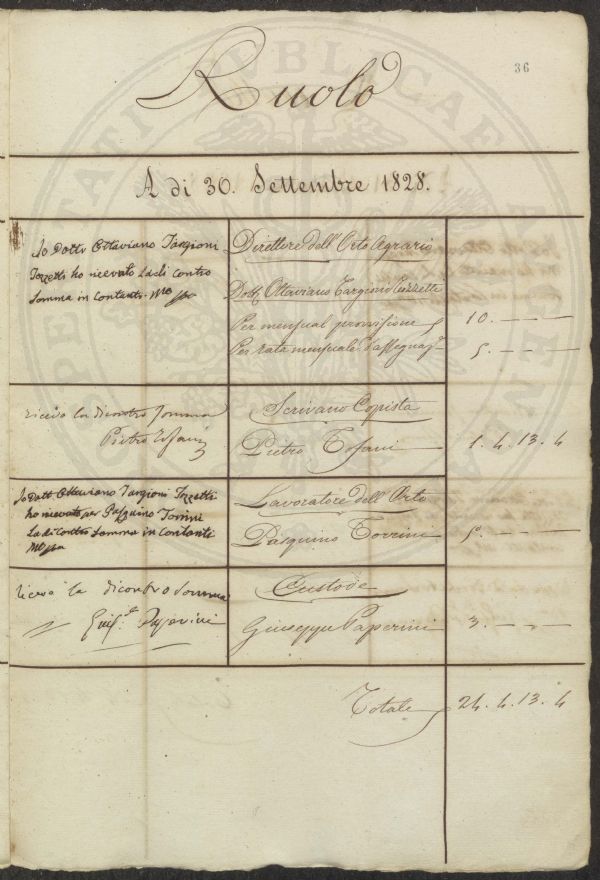 36
Ruolo
A di 30. Settembre 1828.
Io Dott. Ottaviano Targioni
Tozzetti ho ricevuto La di Contro
Somma in Contanti. Mo ppa
Direttore dell'Orto Agrario
Dott. Ottaviano Targioni Tozzetti
Per mensual provvisione
10. — — —
Per rata mensuale d'assegnaz.
5. — — —
ricevo la dicontro Somma
Pietro Tofani
Scrivano Copista
Pietro Tofani
1. 4. 13. 4
Io Dott. Ottaviano Targioni Tozzetti
ho ricevuto per Pasquino Torrini
La di Contro Somma in Contanti
Mo ppa
Lavoratore dell'Orto
Pasquino Torrini
5. — — —
ricevo la dicontro Somma
Giusᵉ. Paperini
Custode
Giuseppe Paperini
3. — — —
Totale
24. 4. 13. 4